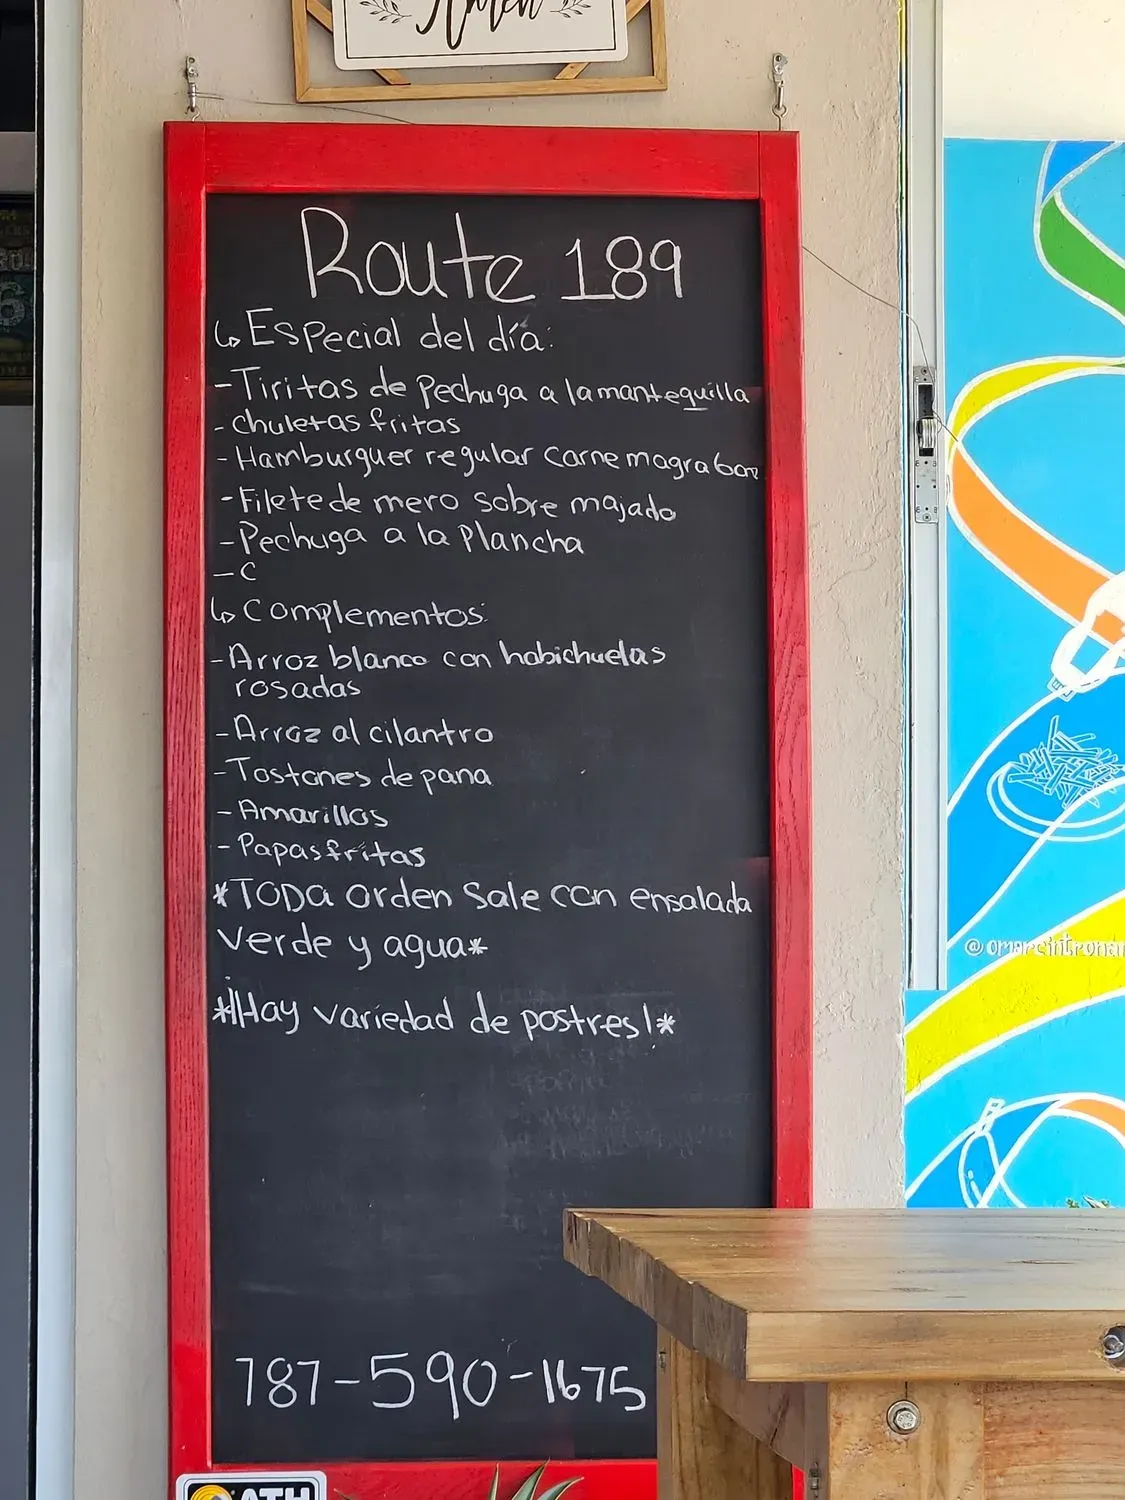 Amen
Route 189
↳ Especial del día:
- Tiritas de Pechuga a la mantequilla
- chuletas fritas
- Hamburguer regular carne magra 6oz
- Filete de mero sobre majado
- Pechuga a la Plancha
- C
↳ Complementos:
- Arroz blanco con habichuelas
rosadas
- Arroz al cilantro
- Tostones de pana
- Amarillos
- Papas fritas
*TODA orden Sale con ensalada
verde y agua*
*¡Hay variedad de postres!*
787-590-1675
ATH